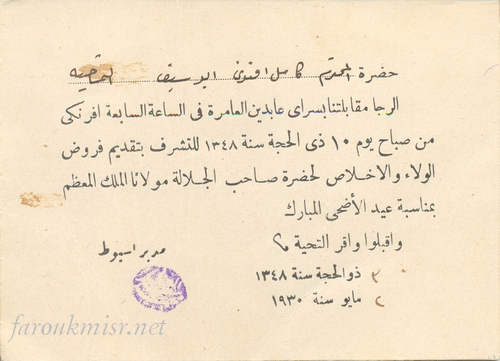 حضرة المحترم كامل افندى ابو ستيت المحامى
الرجا مقابلتنا بسراى عابدين العامرة فى الساعة السابعة افرنكى
من صباح يوم ١٠ ذى الحجة سنة ١٣٤٨ للتشرف بتقديم فروض
الولاء والاخلاص لحضرة صاحب الجلالة مولانا الملك المعظم
بمناسبة عيد الأضحى المبارك
واقبلوا وافر التحية
مدير اسيوط
٣ ذوالحجة سنة ١٣٤٨
٢ مايو سنة ١٩٣٠
faroukmisr.net